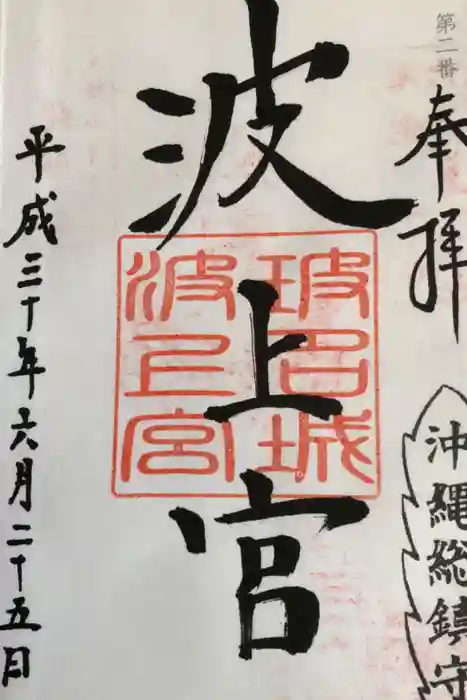 第二番
奉拝
沖縄総鎮守
波上宮
玻名城
波上宮
平成三十年六月二十五日